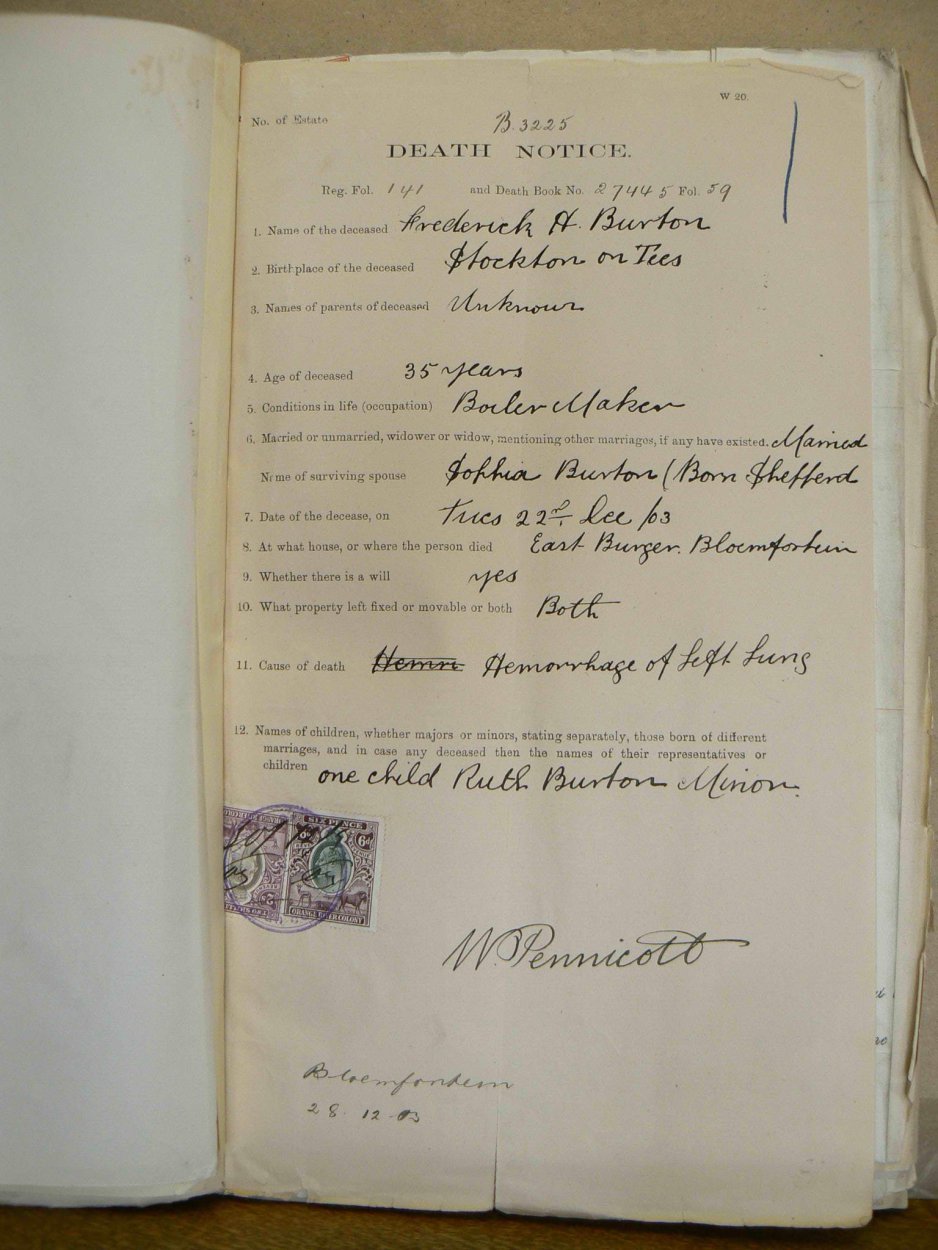 W 20.
No. of Estate B. 3225
DEATH NOTICE.
Reg. Fol. 141 and Death Book No. 27445 Fol. 59
1. Name of the deceased Frederick H. Burton
2. Birthplace of the deceased Stockton on Tees
3. Names of parents of deceased Unknown
4. Age of deceased 35 years
5. Conditions in life (occupation) Boiler Maker
6. Married or unmarried, widower or widow, mentioning other marriages, if any have existed. Married
Name of surviving spouse Sophia Burton (Born Shefferd
7. Date of the decease, on Tues 22nd. Dec /03
8. At what house, or where the person died East Burger. Bloemfontein
9. Whether there is a will yes
10. What property left fixed or movable or both Both
11. Cause of death Hemorrhage of Left Lung
12. Names of children, whether majors or minors, stating separately, those born of different
marriages, and in case any deceased then the names of their representatives or
children one child Ruth Burton Minor.
SIX PENCE
6d
ORANGE RIVER COLONY
W. Pennicott
Bloemfontein
28.12.03